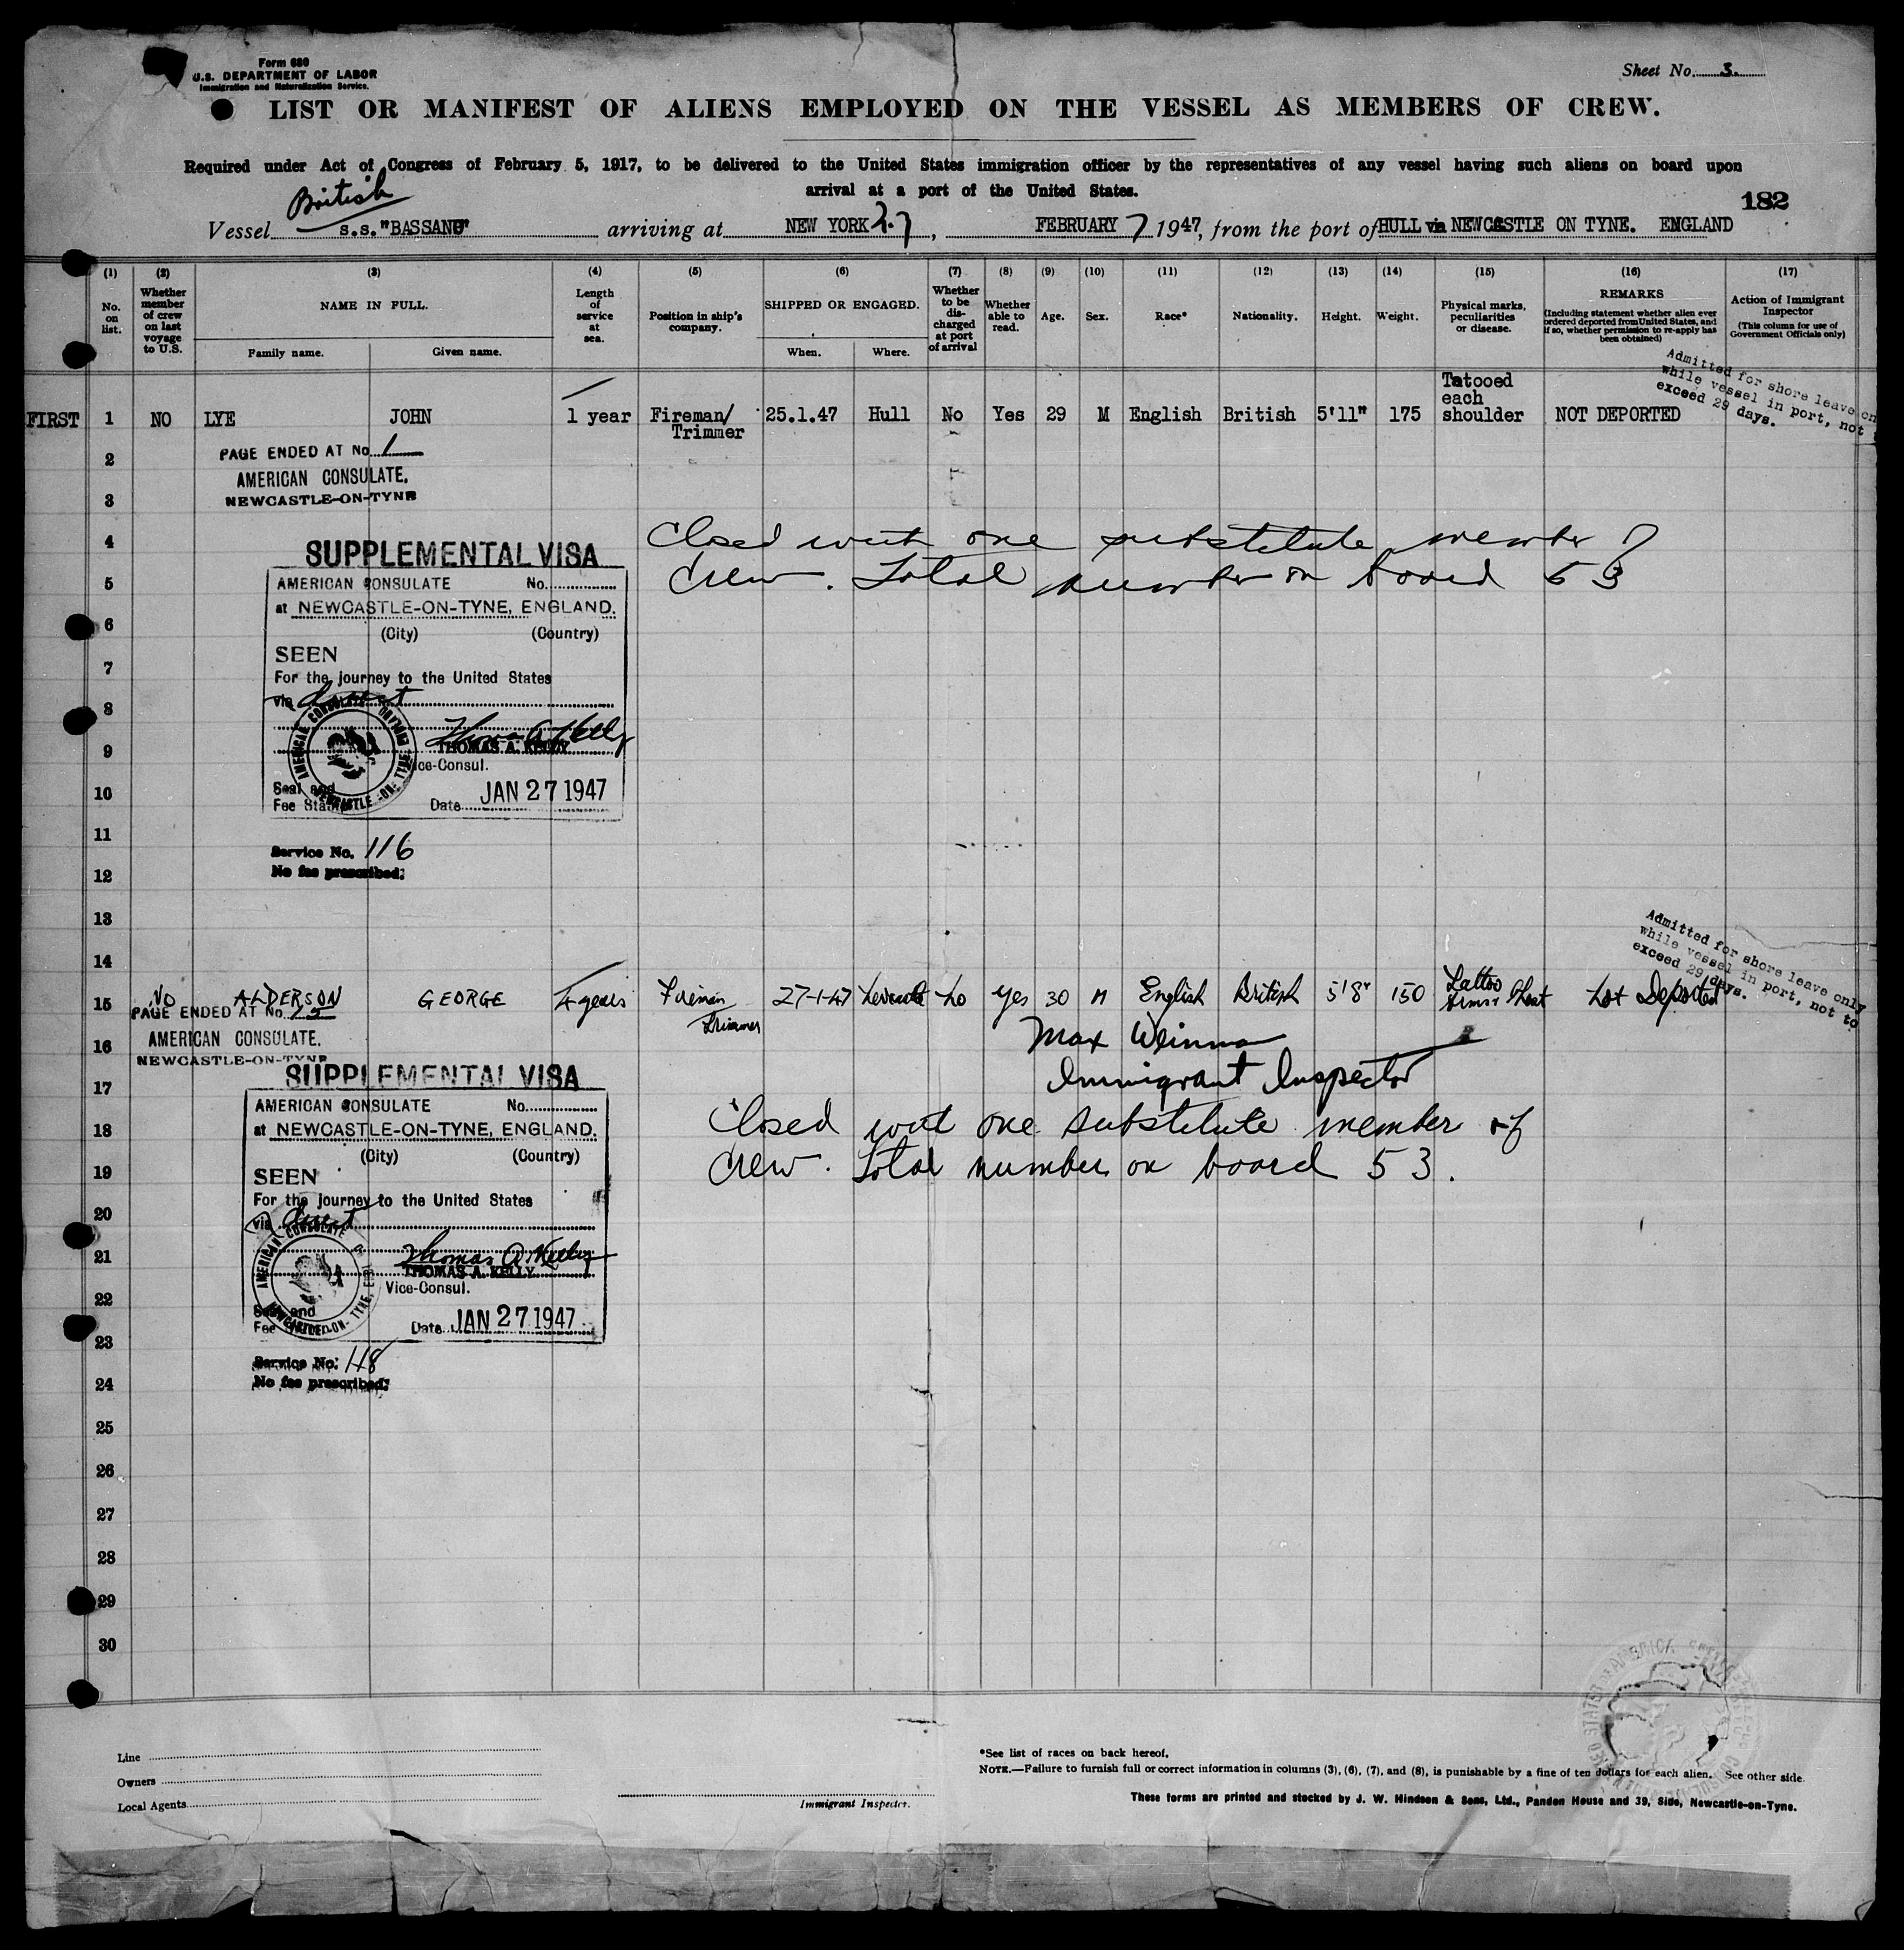 Form 680
U.S. DEPARTMENT OF LABOR
Immigration and Naturalization Service.
Sheet No. 3.
LIST OR MANIFEST OF ALIENS EMPLOYED ON THE VESSEL AS MEMBERS OF CREW.
Required under Act of Congress of February 5, 1917, to be delivered to the United States immigration officer by the representatives of any vessel having such aliens on board upon
arrival at a port of the United States.
182
British
Vessel s.s."BASSANO" arriving at NEW YORK, FEBRUARY 7 1947, from the port of HULL via NEWCASTLE ON TYNE. ENGLAND
(1) (2) (3) (4) (5) (6) (7) (8) (9) (10) (11) (12) (13) (14) (15) (16) (17)
No. on list.
Whether member of crew on last voyage to U.S.
NAME IN FULL.
Family name. Given name.
Length of service at sea.
Position in ship's company.
SHIPPED OR ENGAGED.
When. Where.
Whether to be discharged at port of arrival
Whether able to read.
Age.
Sex.
Race*
Nationality.
Height.
Weight.
Physical marks, peculiarities or disease.
REMARKS
(Including statement whether alien ever ordered deported from United States, and if so, whether permission to re-apply has been obtained)
Action of Immigrant Inspector
(This column for use of Government Officials only)
Admitted for shore leave on
while vessel in port, not
exceed 29 days.
FIRST 1 NO LYE JOHN 1 year Fireman/ Trimmer 25.1.47 Hull No Yes 29 M English British 5'11" 175 Tatooed each shoulder NOT DEPORTED
2
PAGE ENDED AT No. 1
AMERICAN CONSULATE,
3
NEWCASTLE-ON-TYNE
4
Closed with one substitute member of
SUPPLEMENTAL VISA
crew. Total number on board 53
5
AMERICAN CONSULATE No.
at NEWCASTLE-ON-TYNE, ENGLAND.
6
(City) (Country)
SEEN
7
For the journey to the United States
via direct
8
AMERICAN CONSULATE NEWCASTLE-ON-TYNE, ENGLAND
Thomas A. Kelly
9
THOMAS A. KELLY
Vice-Consul.
10
Seal and
Fee Stamp
Date JAN 27 1947
11
Service No. 116
12
No fee prescribed.
13
14
Admitted for shore leave only
while vessel in port, not to
exceed 29 days.
15 NO ALDERSON GEORGE 4 years Fireman Trimmer 27-1-47 Newcastle No Yes 30 M English British 5'8" 150 Tattoo Arms & Chest Not Deported
PAGE ENDED AT No. 15
AMERICAN CONSULATE,
16
NEWCASTLE-ON-TYNE
Max Weinman
Immigrant Inspector
17
SUPPLEMENTAL VISA
AMERICAN CONSULATE No.
18
Closed with one substitute member of
at NEWCASTLE-ON-TYNE, ENGLAND.
(City) (Country)
19
crew. Total number on board 53.
SEEN
For the journey to the United States
20
via direct
AMERICAN CONSULATE NEWCASTLE-ON-TYNE, ENGL
21
Thomas A. Kelly
THOMAS A. KELLY
Vice-Consul.
22
Seal and
Fee
Date JAN 27 1947
23
Service No. 118
24
No fee prescribed.
25
26
27
28
29
30
Line
Owners
Local Agents
Immigrant Inspector.
*See list of races on back hereof.
NOTE.—Failure to furnish full or correct information in columns (3), (6), (7), and (8), is punishable by a fine of ten dollars for each alien. See other side.
These forms are printed and stocked by J. W. Hindson & Sons, Ltd., Pandon House and 39, Side, Newcastle-on-Tyne.